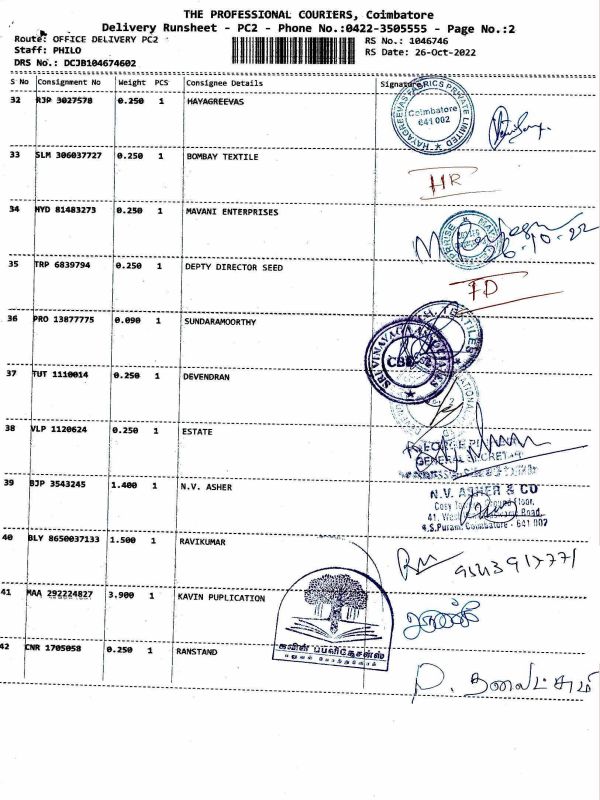 THE PROFESSIONAL COURIERS, Coimbatore
Delivery Runsheet - PC2 - Phone No.:0422-3505555 - Page No.:2
Route: OFFICE DELIVERY PC2
RS No.: 1046746
Staff: PHILO
RS Date: 26-Oct-2022
DRS No.: DCJB104674602
S No Consignment No Weight PCS Consignee Details Signature
32 RJP 3027578 0.250 1 HAYAGREEVAS
HAYAGREEVAS FABRICS PRIVATE LIMITED
Coimbatore
641 002
33 SLM 306037727 0.250 1 BOMBAY TEXTILE
HR
34 HYD 81483273 0.250 1 MAVANI ENTERPRISES
26-10-22
35 TRP 6839794 0.250 1 DEPTY DIRECTOR SEED
FD
36 PRO 13877775 0.090 1 SUNDARAMOORTHY
TEXTILES
SRI VINAYAGA ASSOCIATES
CBE
37 TUT 1110014 0.250 1 DEVENDRAN
38 VLP 1120624 0.250 1 ESTATE
GENERAL SECRETARY
39 BJP 3543245 1.400 1 N.V. ASHER
N.V. ASHER & CO
Floor,
41, Road,
R.S.Puram, Coimbatore - 641 002
40 BLY 8650037133 1.500 1 RAVIKUMAR
41 MAA 292224827 3.900 1 KAVIN PUPLICATION
கவின் பப்ளிகேசன்ஸ்
42 CNR 1705058 0.250 1 RANSTAND
P.